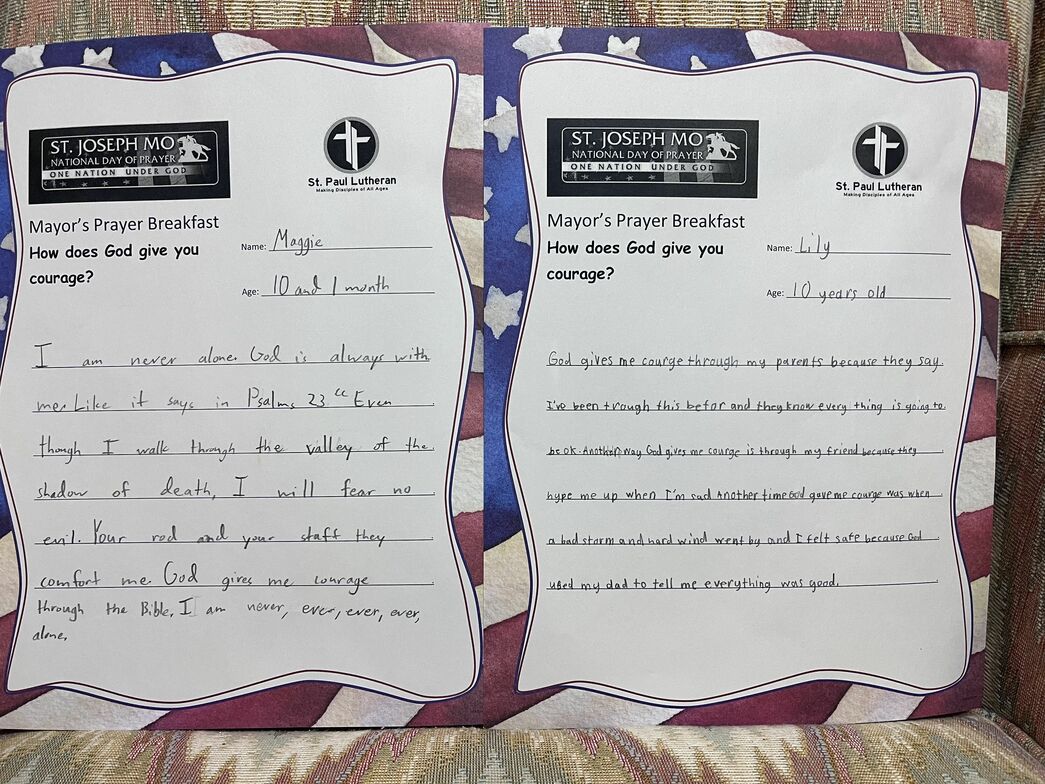 ST. JOSEPH MO
NATIONAL DAY OF PRAYER
ONE NATION UNDER GOD
St. Paul Lutheran
Making Disciples of All Ages
Mayor's Prayer Breakfast
How does God give you
courage?
Name: Maggie
Age: 10 and 1 month
I am never alone. God is always with
me. Like it says in Psalms 23 "Even
though I walk through the valley of the
shadow of death, I will fear no
evil. Your rod and your staff they
comfort me. God gives me courage
through the Bible. I am never, ever, ever, ever,
alone.
ST. JOSEPH MO
NATIONAL DAY OF PRAYER
ONE NATION UNDER GOD
St. Paul Lutheran
Making Disciples of All Ages
Mayor's Prayer Breakfast
How does God give you
courage?
Name: Lily
Age: 10 years old
God gives me courge through my parents because they say.
I've been trough this befor and they know every thing is going to
be OK. Another way God gives me courge is through my friend because they
hype me up when I'm sad Another time God gave me courge was when
a bad storm and hard wind went by and I felt safe because God
used my dad to tell me everything was good.